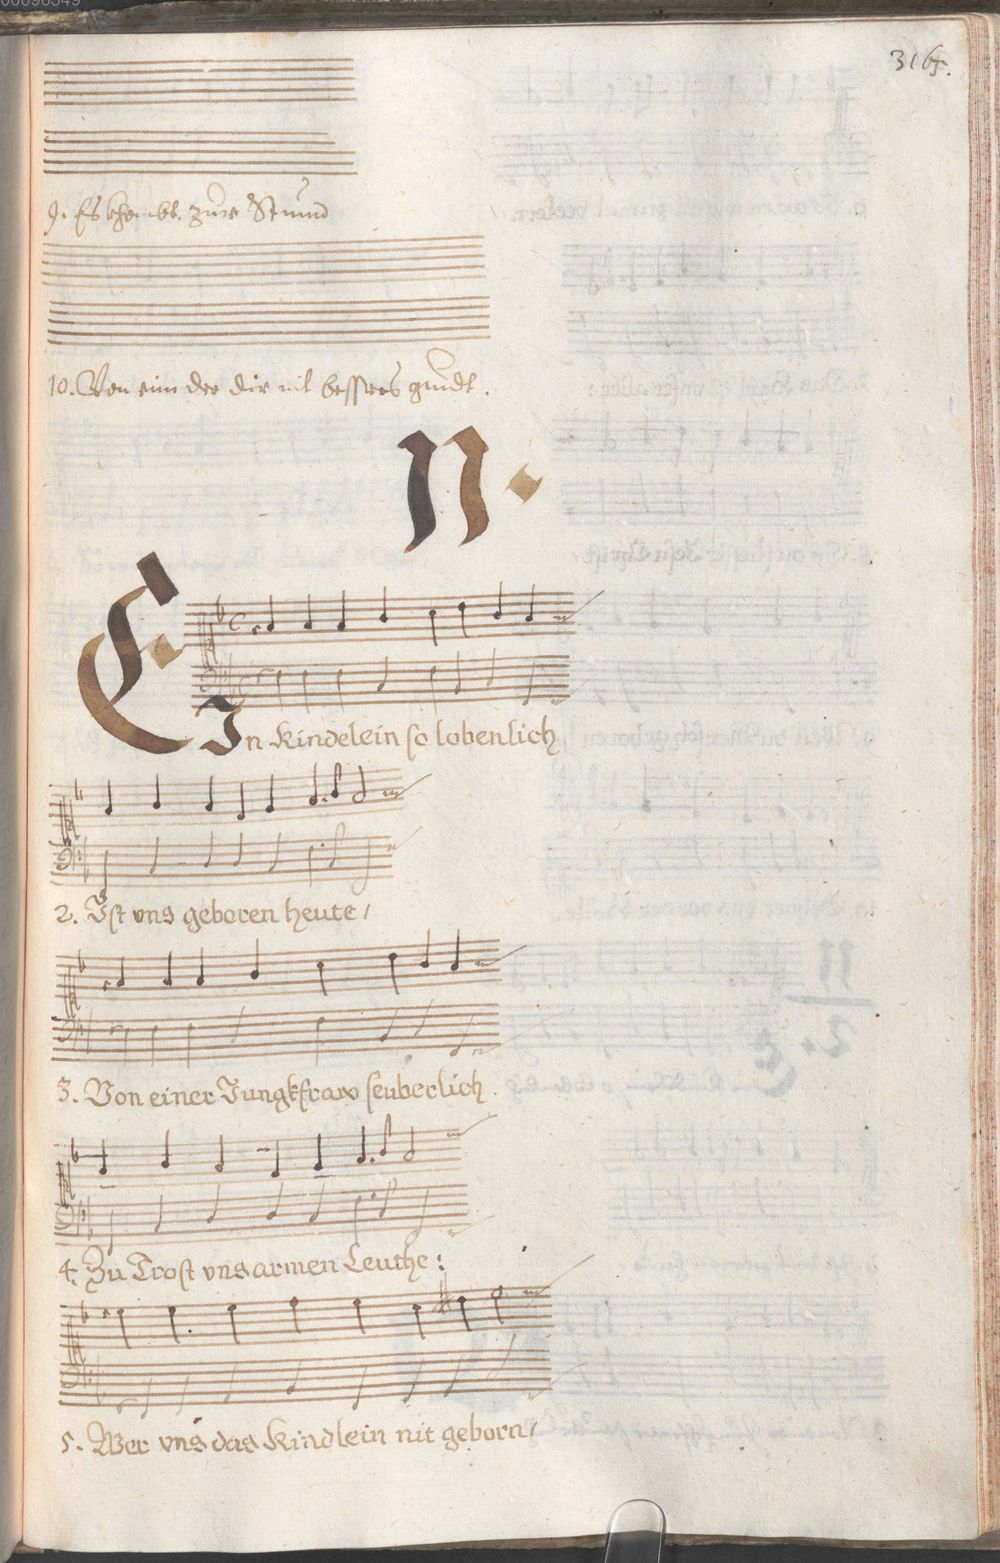 316.
9. Es khombt zur Stund
10. Von eim der dir nit bessers gundt.
11.
EIn Kindelein so lobenlich
2. Ist vns geboren heute/
3. Von einer Jungkfraw seuberlich
4. Zu Trost vns armen Leuthe:
5. Wer vns das Kindlein nit geborn/